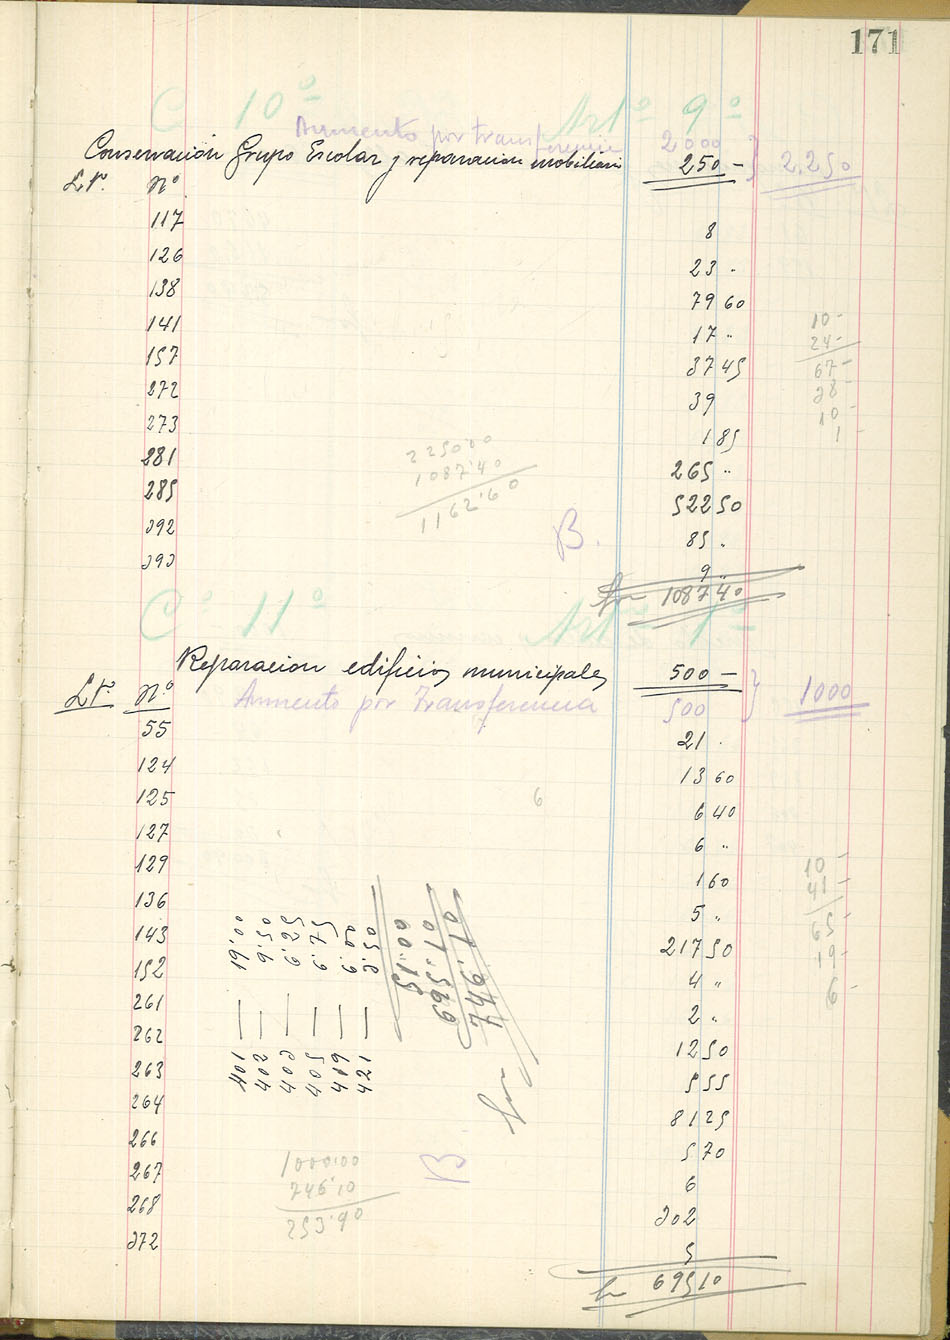 171
C 10º Artº 9º
Aumento por transferencia 2000
Conservación Grupo Escolar y reparacion mobiliario 250 - 2,250
Lr. Nº
117 8
126 23 "
138 79 60
141 17 "
157 37 45
272 39
273 1 85
281 265 "
285 522 50
392 85 "
393 9 "
1087 40
10 -
24 -
67 -
28 -
10 -
1 -
2250'00
1087'40
1162'60
B.
Cº 11º Artº 1º
Reparacion edificios municipales 500 -
Aumento por Transferencia 500 1000
Lr. Nº
55 21 "
124 13 60
125 6 40
127 6 "
129 1 60
136 5 "
143 217 50
152 4 "
261 2 "
262 12 50
263 5 55
264 81 25
266 5 70
267 6
268 302
372 5
695 10
6
10 -
41 -
65 -
19 -
6 -
401 — 19'00
402 — 9'50
403 — 9'25
405 — 9'75
419 —
421 —
695'10
746'10
1000'00
746'10
253'90
B